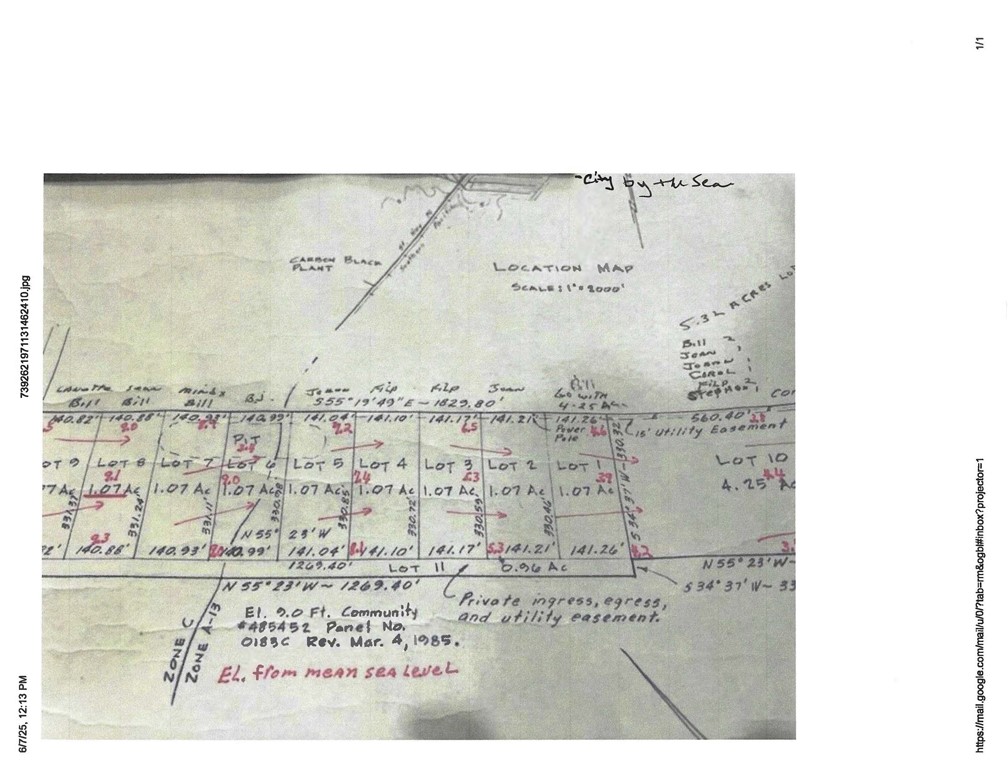 1/1
https://mail.google.com/mail/u/0/?tab=rm&ogbl#inbox?projector=1
739262197131462410.jpg
6/7/25, 12:13 PM
-City by the Sea
CARBON BLACK
PLANT
LOCATION MAP
SCALE: 1"=2000'
5.32 ACRES
Bill
Joan
Carol
Filp
Bill
Bill
Filp
Filp
Joan
Bill
Go with
4.25 Ac
S55°19'49"E~1829.80'
140.82' 140.88' 140.93' 140.99' 141.04' 141.10' 141.17' 141.21' 141.26' 560.40'
9.0 9.2 6.5 4.6
Power
Pole
15' Utility Easement
PIT
OT 9 LOT 8 LOT 7 LOT 6 LOT 5 LOT 4 LOT 3 LOT 2 LOT 1 LOT 10
9.1 9.0 7.4 5.3 4.4
7 Ac 1.07 Ac 1.07 Ac 1.07 Ac 1.07 Ac 1.07 Ac 1.07 Ac 1.07 Ac 1.07 Ac 4.25 Ac
331.37' 331.24' 331.11' 330.98' 330.85' 330.72' 330.59' 330.46' S 34°37'W~330.32'
N55° 23'W
9.3 5.3 4.2 3.
2' 140.88' 140.93' 140.99' 141.04' 141.10' 141.17' 141.21' 141.26'
1269.40' LOT 11 0.96 Ac
N 55° 23'W~
N 55° 23'W~ 1269.40'
S34° 37' W~ 33
Private ingress, egress,
and utility easement.
El. 9.0 Ft. Community
#485452 Panel No.
0183C Rev. Mar. 4, 1985.
ZONE C
ZONE A-13
El. from mean sea level